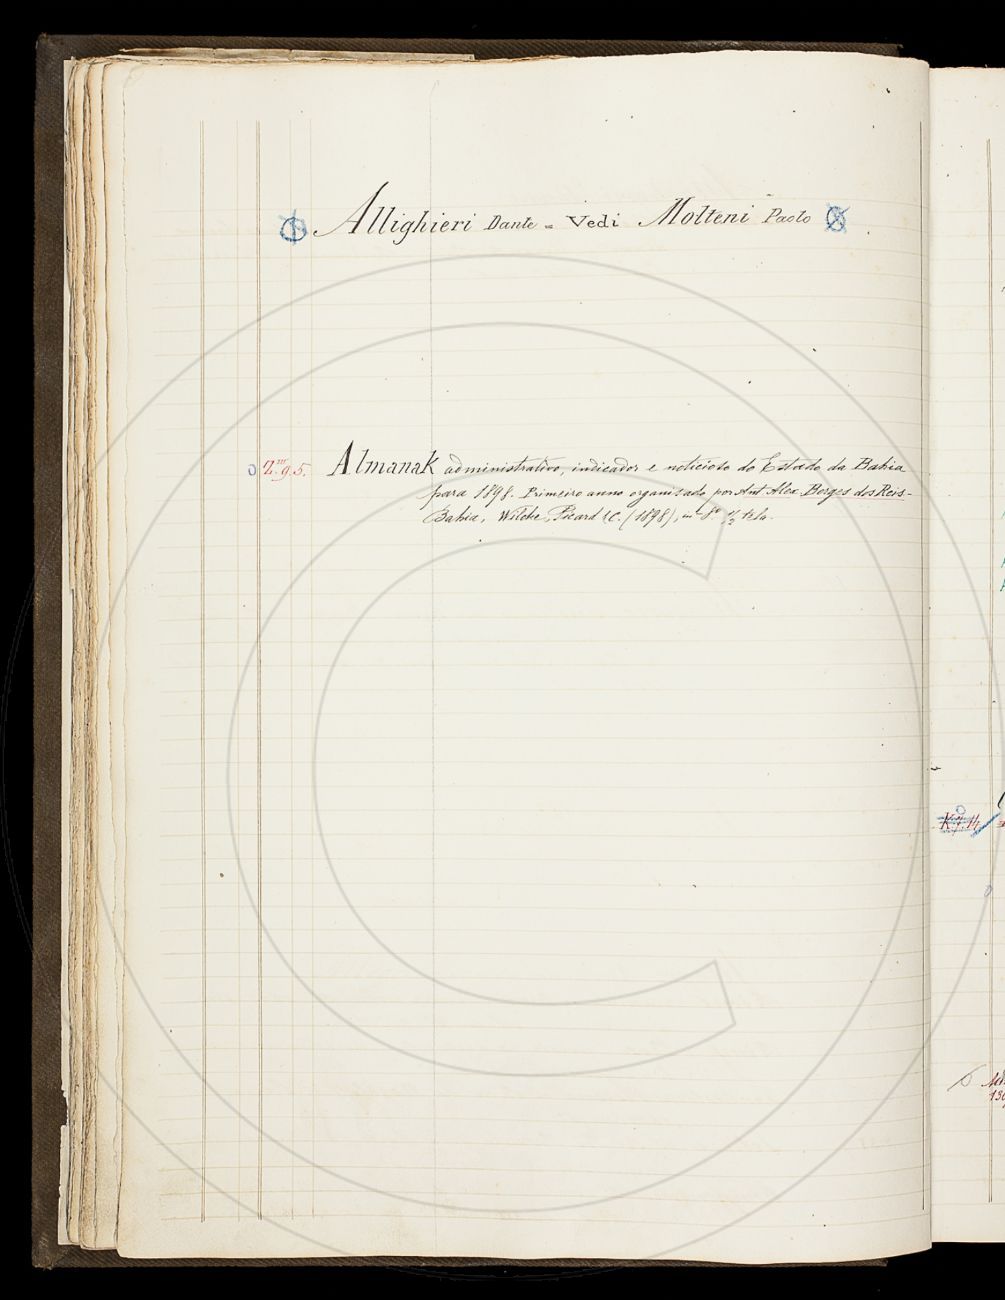 Allighieri Dante = Vedi Molteni Paolo
Z.III.9.5. Almanak administrativo, indicador e noticioso do Estado da Bahia
para 1898. Primeiro anno organisado por Ant. Alex. Borges dos Reis -
Bahia, Wilcke, Picard & C. (1898), in-8° 1/2 tela.
K.7.14